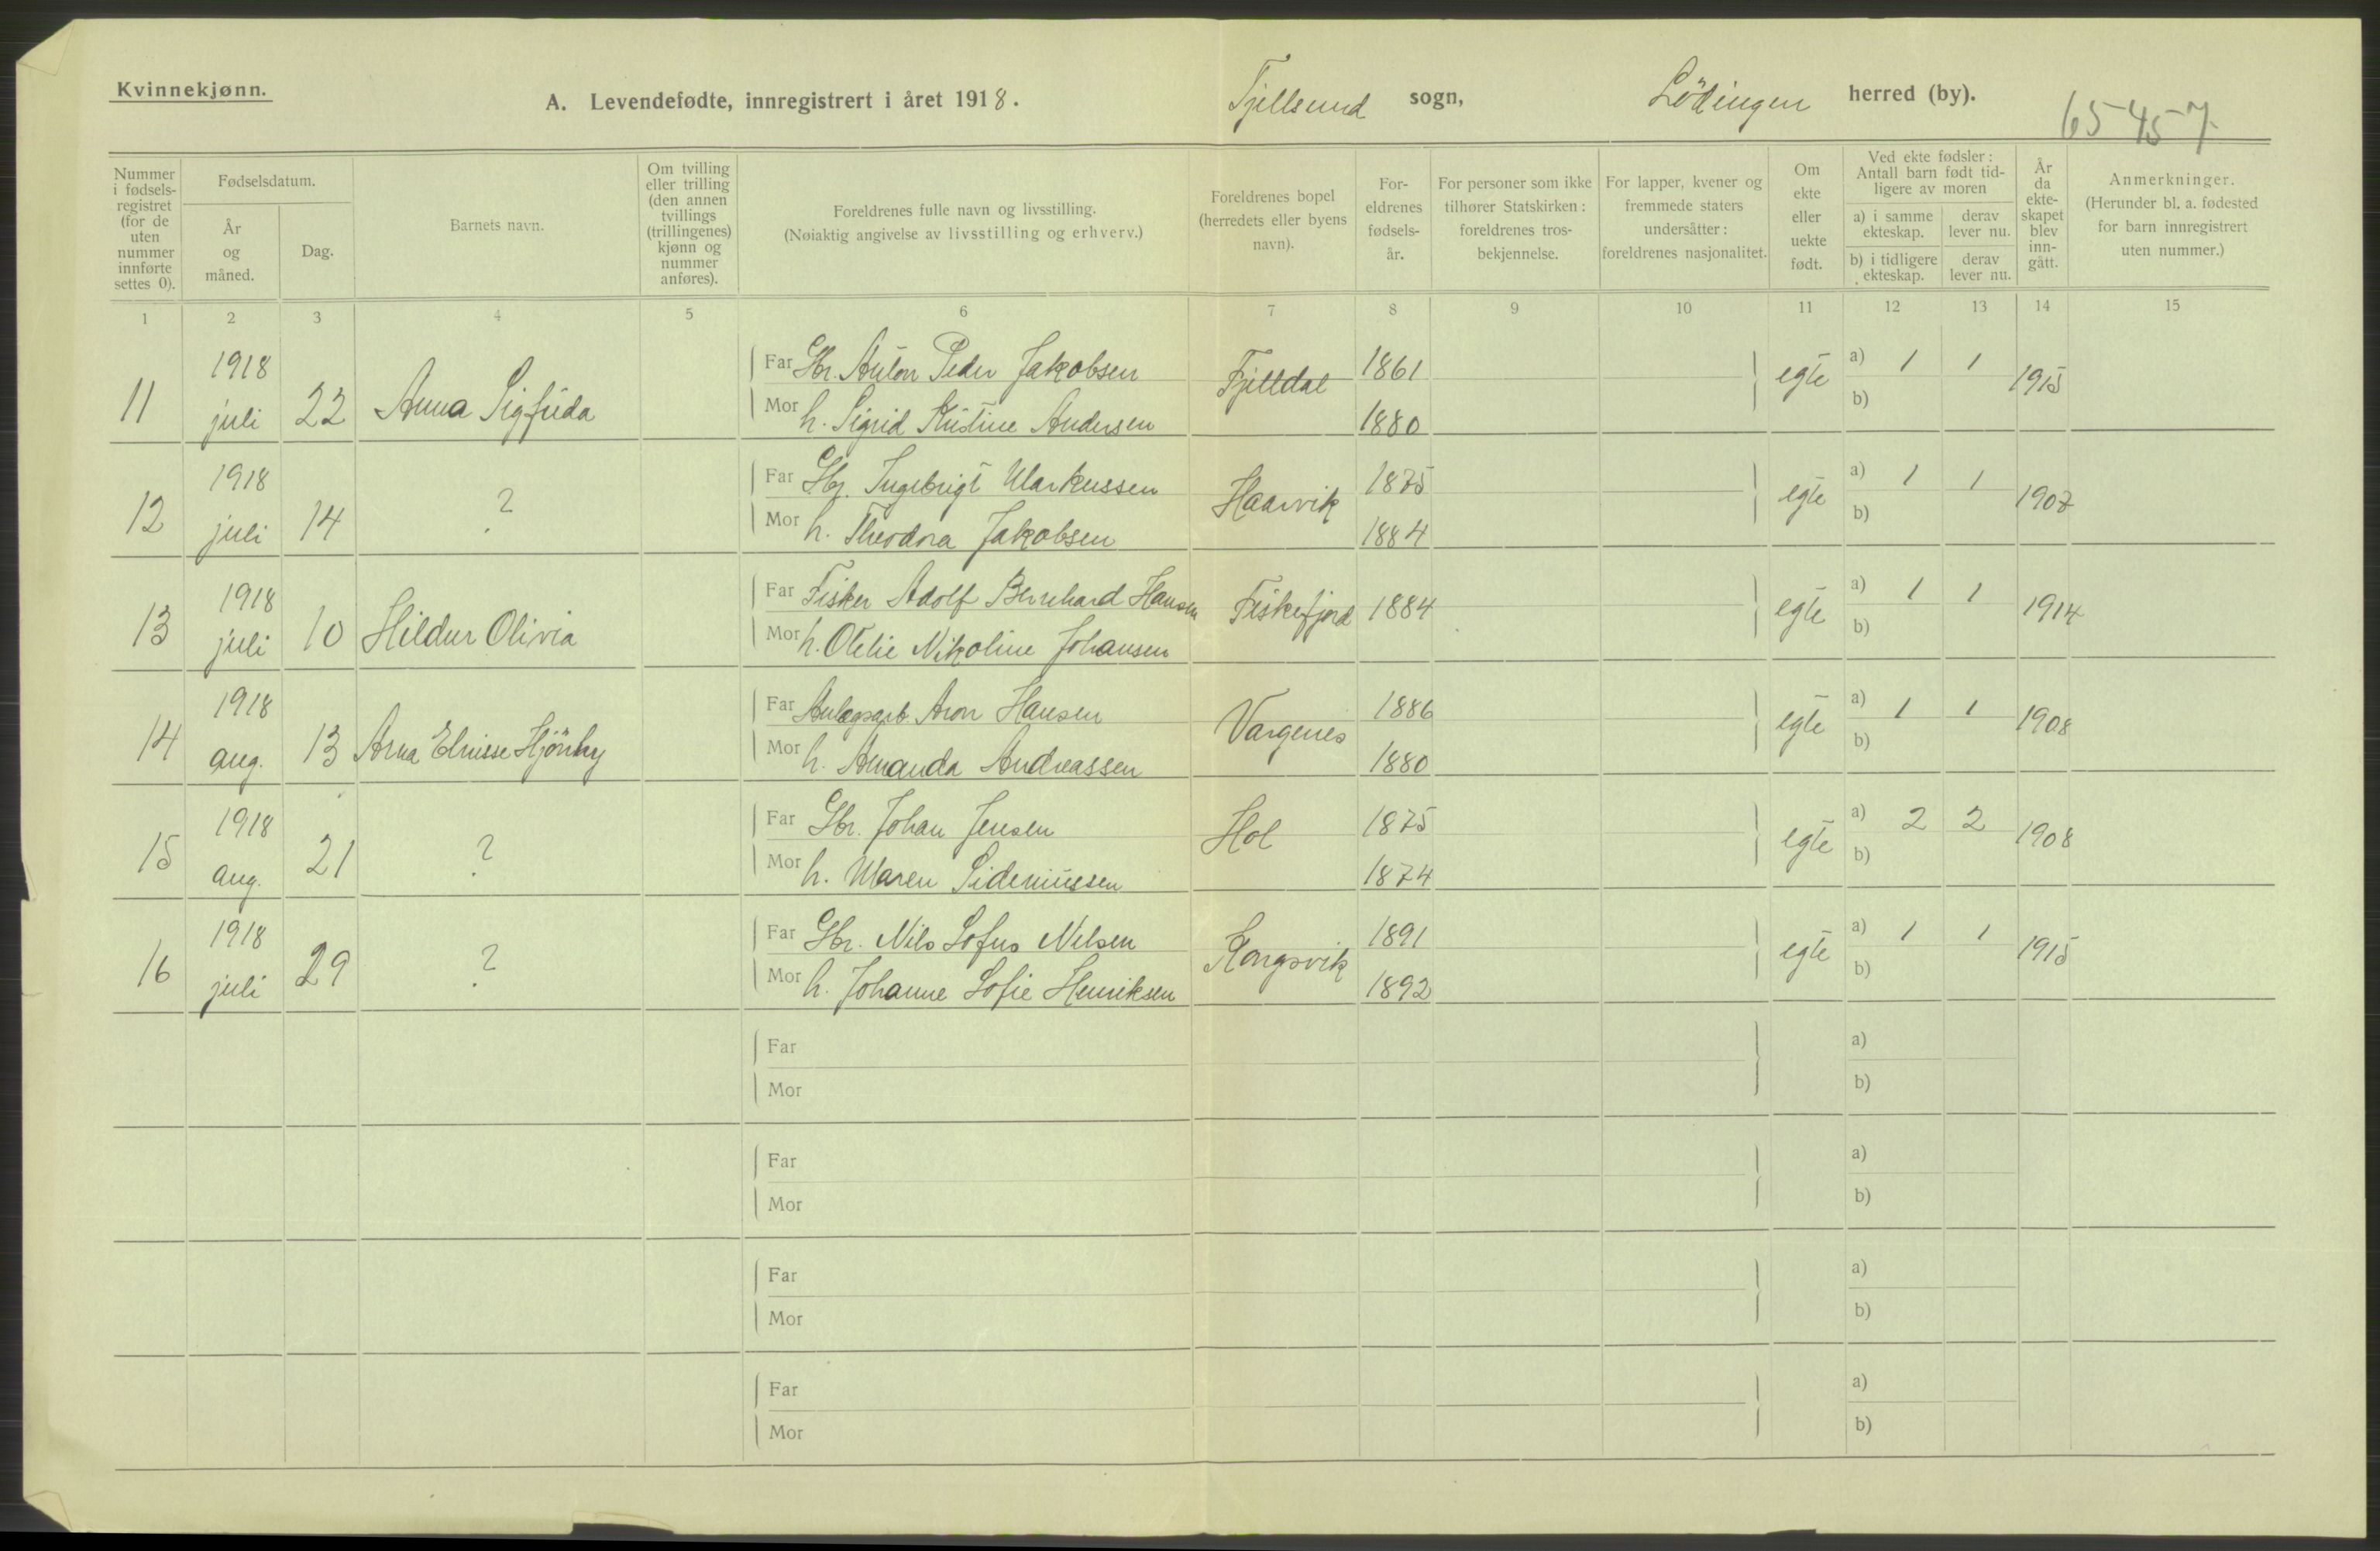 Kvinnekjønn.
A. Levendefødte, innregistrert i året 1918.
Tjellsund sogn, Lödingen herred (by).
65-45-7
Nummer i fødsels-registret (for de uten nummer innførte settes 0).
Fødselsdatum.
År og måned.
Dag.
Barnets navn.
Om tvilling eller trilling (den annen tvillings (trillingenes) kjønn og nummer anføres).
Foreldrenes fulle navn og livsstilling.
(Nøiaktig angivelse av livsstilling og erhverv.)
Foreldrenes bopel (herredets eller byens navn).
For-eldrenes fødsels-år.
For personer som ikke tilhører Statskirken: foreldrenes tros-bekjennelse.
For lapper, kvener og fremmede staters undersåtter: foreldrenes nasjonalitet.
Om ekte eller uekte født.
Ved ekte fødsler: Antall barn født tid-ligere av moren
a) i samme ekteskap.
derav lever nu.
b) i tidligere ekteskap.
derav lever nu.
År da ekte-skapet blev inn-gått.
Anmerkninger.
(Herunder bl. a. fødested for barn innregistrert uten nummer.)
1 2 3 4 5 6 7 8 9 10 11 12 13 14 15
1918 Far Gbr. Anton Peder Jakobsen 1861 a) 1 1
11 juli 22 Anna Sigfrida Fjelldal egte 1915
Mor h. Sigrid Kristine Andersen 1880 b)
1918 Far Gbr. Ingebrigt Markussen 1875 a) 1 1
12 juli 14 ? Haarvik egte 1907
Mor h. Theodora Jakobsen 1884 b)
1918 Far Fisker Adolf Bernhard Hansen Fiskefjord 1884 a) 1 1
13 juli 10 Hildur Olivia egte 1914
Mor h. Otelie Nikoline Johansen b)
1918 Far Anlægsarb. Aron Hansen 1886 a) 1 1
14 aug. 13 Arna Hjördny Vargenes egte 1908
Mor h. Amanda Andreassen 1880 b)
1918 Far Gbr. Johan Jensen 1875 a) 2 2
15 aug. 21 ? Hol egte 1908
Mor h. Maren Sideniussen 1874 b)
1918 Far Gbr. Nils Sofus Nilsen 1891 a) 1 1
16 juli 29 ? Kongsvik egte 1915
Mor h. Johanne Sofie Henriksen 1892 b)
Far a)
Mor b)
Far a)
Mor b)
Far a)
Mor b)
Far a)
Mor b)